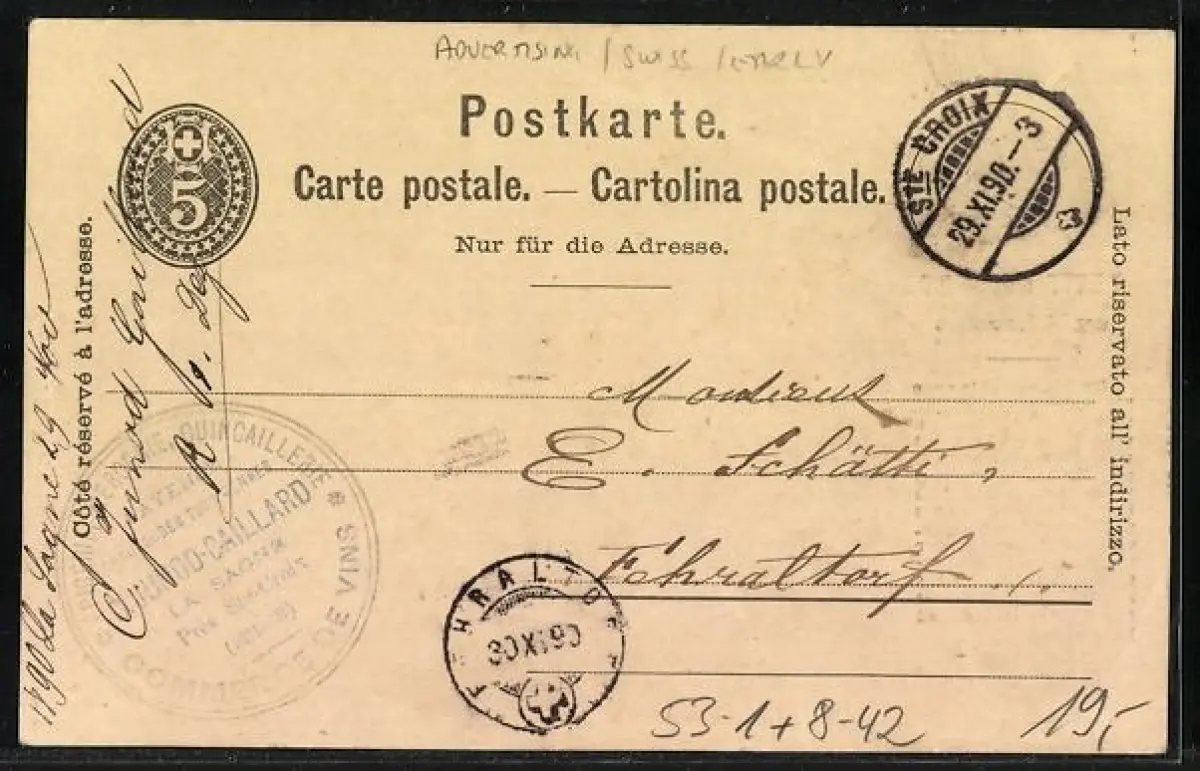 ADVERTISING / SWISS /
Postkarte.
Carte postale. — Cartolina postale.
Nur für die Adresse.
5
STE CROIX
29.XI.90.–3
Côté réservé à l'adresse.
Lato riservato all' indirizzo.
Junod
Monsieur
E. Schätti,
Fehraltorf.
QUINCAILLERIE
JUNOD-CAILLARD
LA SAGNE
Près Ste Croix
COMMERCE DE VINS
FEHRALTORF
30 XI 90
53-1+8-42
19,-